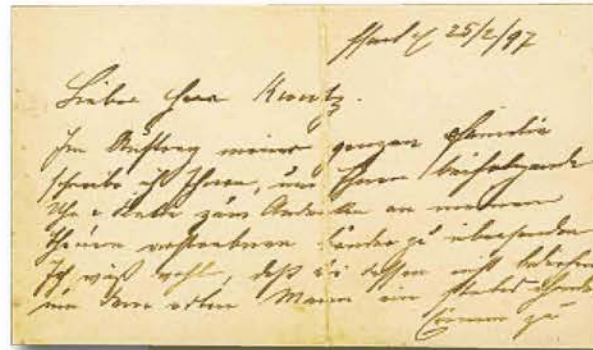 25/2/97
Lieber Herr Kuntz.
Im Auftrag meiner ganzen Familie
schreibe ich Ihnen, um Ihnen beifolgende
Uhr & Kette zum Andenken an meinen
theuren verstorbenen zu übersenden
Ich weiß wohl, daß es dessen nicht
um dem edlen Mann ein
zu